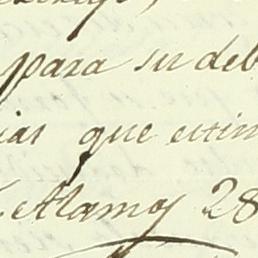 para su deb
ias que estim
Alamos 28